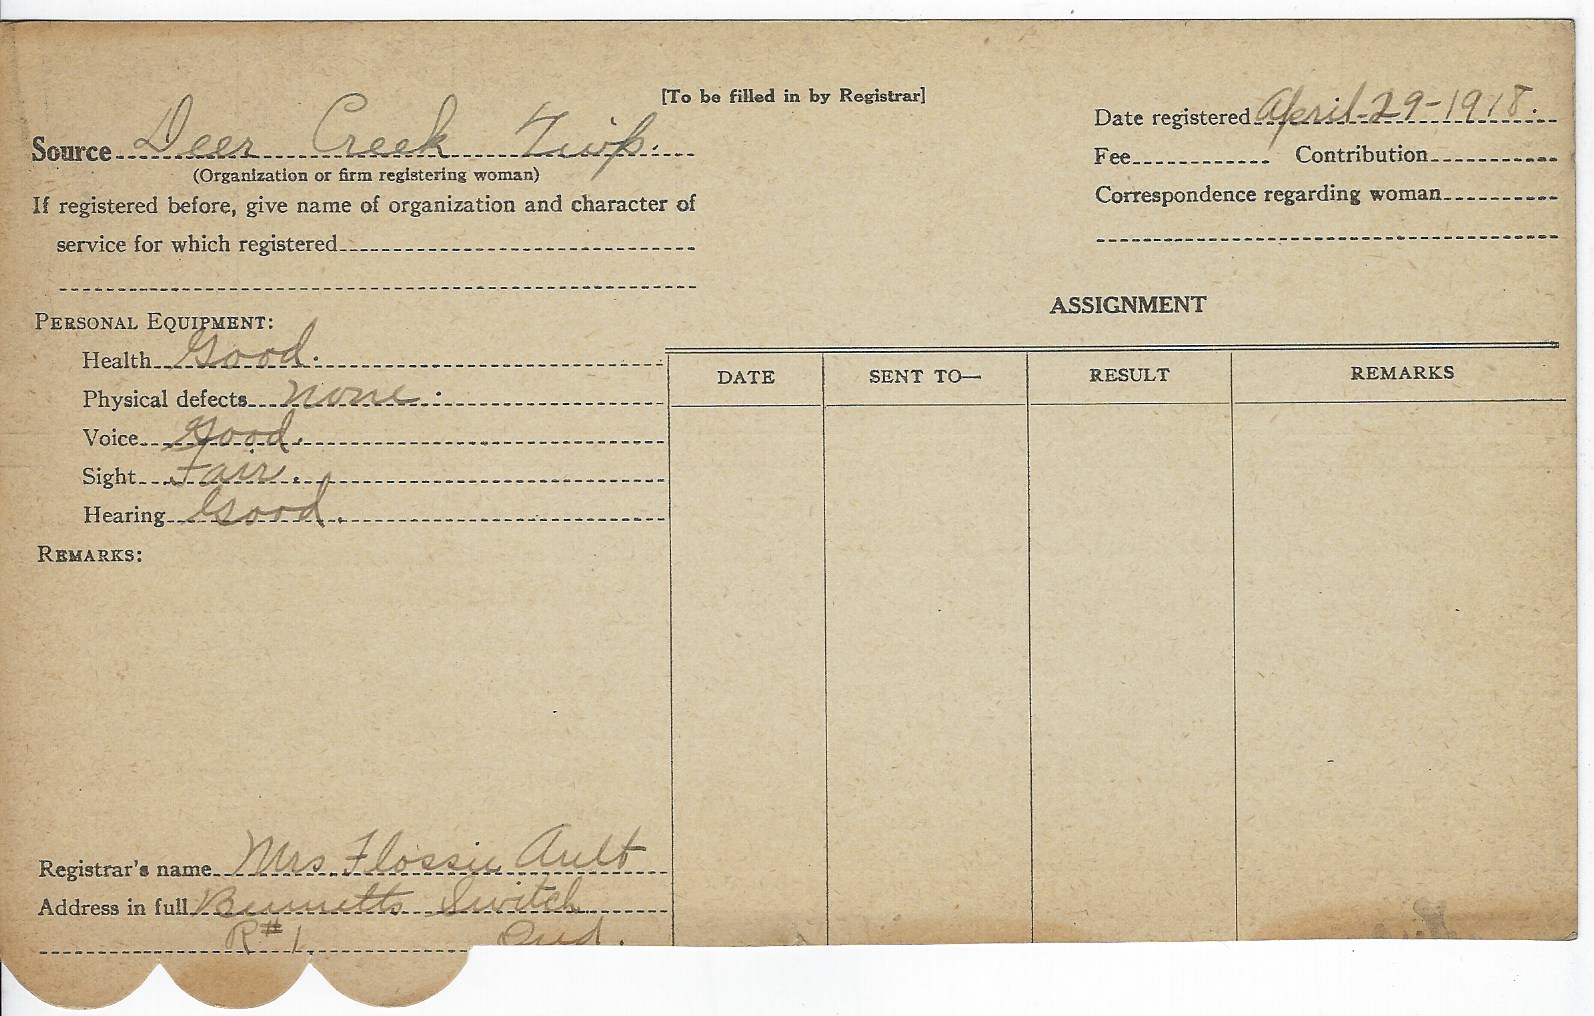 [To be filled in by Registrar]
Source Deer Creek Twp.
(Organization or firm registering woman)
If registered before, give name of organization and character of
service for which registered
Date registered April-29-1918.
Fee Contribution
Correspondence regarding woman
PERSONAL EQUIPMENT:
Health Good.
Physical defects none.
Voice Good.
Sight Fair.
Hearing Good.
REMARKS:
ASSIGNMENT
DATE SENT TO— RESULT REMARKS
Registrar's name Mrs. Flossie Ault
Address in full Bennetts Switch
R#1 Ind.